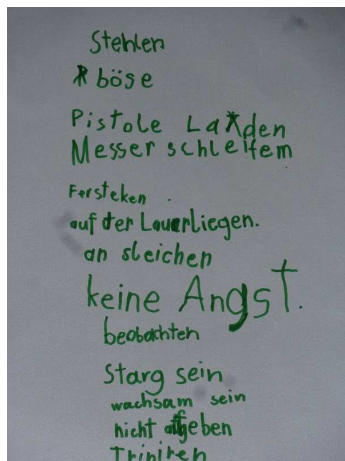 Stehlen
böse
Pistole Laden
Messer schleifem
Fersteken
auf der Lauerliegen.
an sleichen
keine Angst.
beobachten
Starg sein
wachsam sein
nicht aufgeben
Triniren